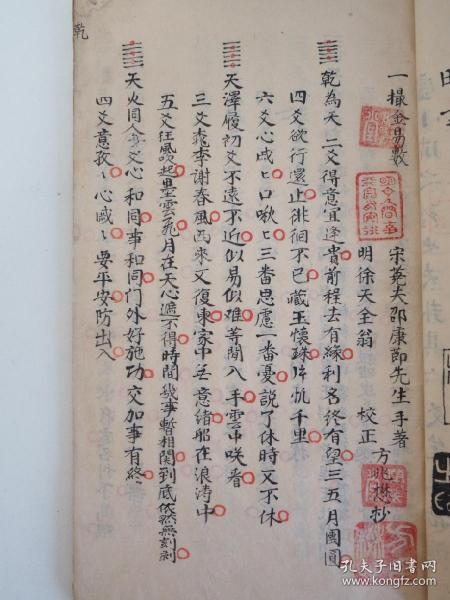 乾
一撮金易數
宋堯夫邵康節先生手著
明徐天全翁 校正
方兆楙抄
乾為天二爻得意宜逢貴前程去有緣利名終有望三五月團圓
四爻欲行還止徘徊不已藏玉懷珠片帆千里
六爻心戚〻口啾〻三番思慮一番憂說了休時又不休
天澤履初爻不遠不近似易似難等閒入手雲中咲看
三爻桃李謝春風西來又復東家中無意緒船在浪濤中
五爻狂風吹起墨雲飛月在天心遮不得時間幾事暫相関到底依然無剋剥
天火同人
爻心和同事和同門外好施功交加事有終
四爻意孜〻心戚〻要平安防出入
孔夫子旧书网